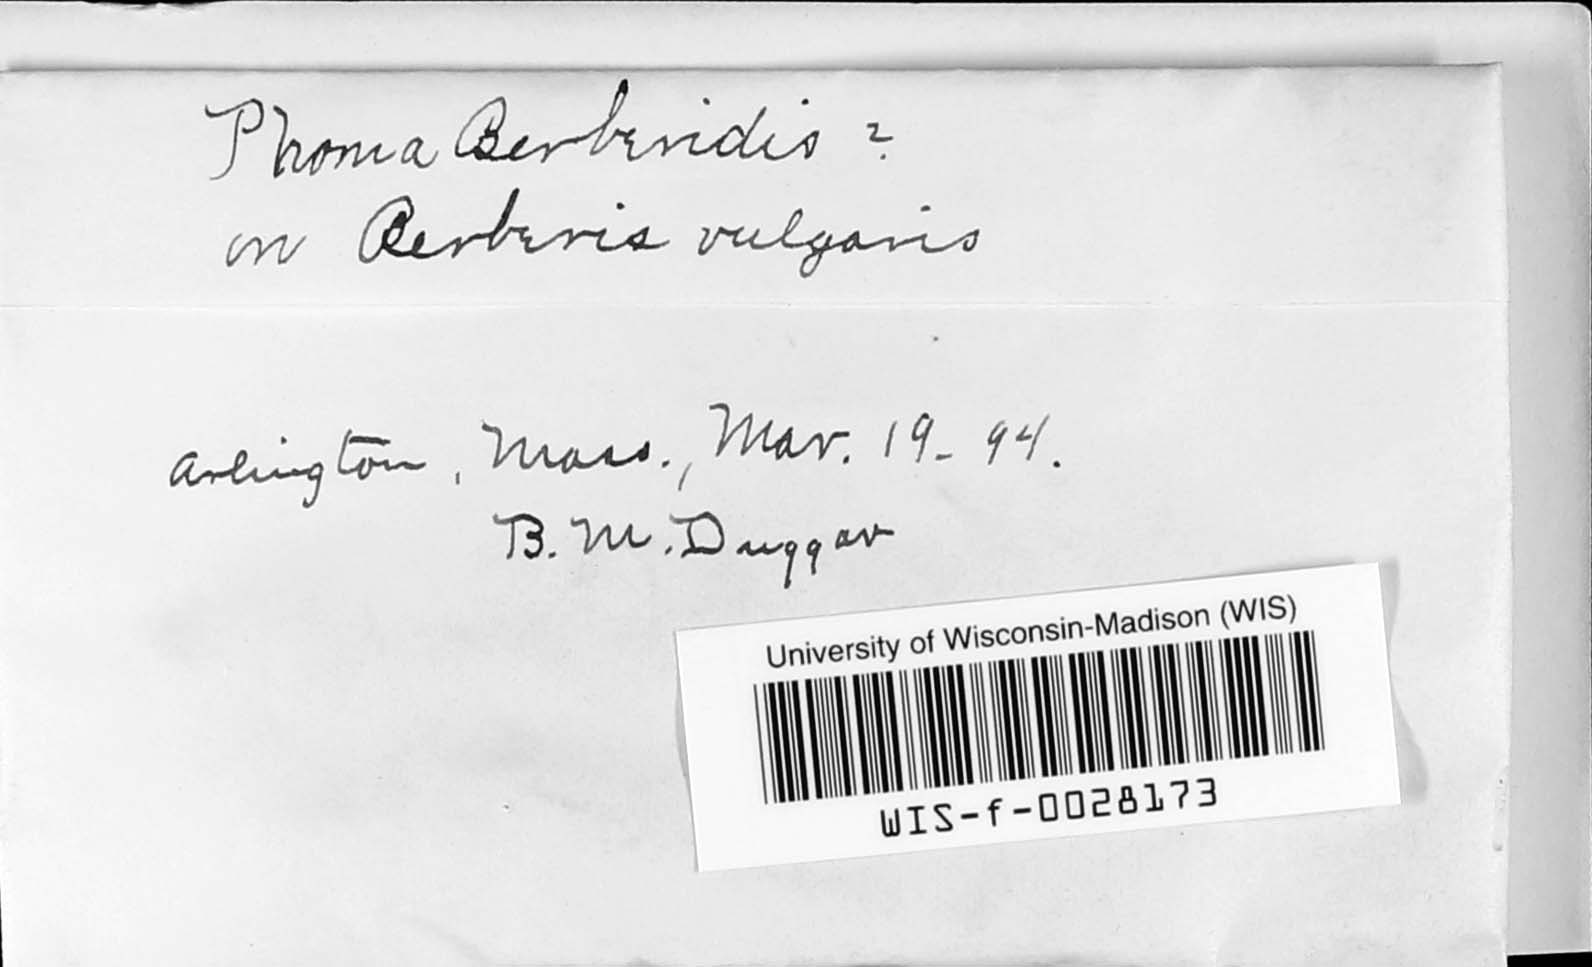 Phoma Berberidis ?
on Berberis vulgaris
Arlington, Mass., Mar. 19-94.
B. M. Duggar
University of Wisconsin-Madison (WIS)
WIS-f-0028173